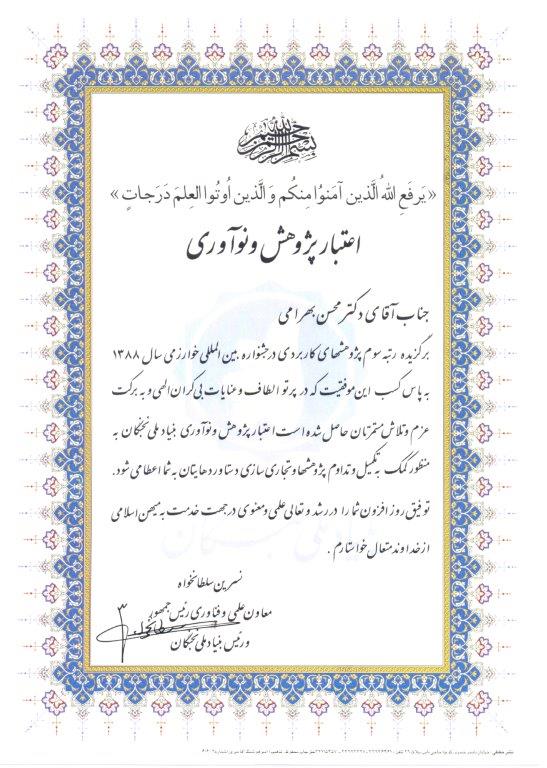 بسم الله الرحمن الرحیم
« یَرفَعِ اللهُ الَّذینَ آمَنُوا مِنکُم وَ الَّذینَ اُوتُوا العِلمَ دَرَجاتٍ »
اعتبار پژوهش و نوآوری
جناب آقای دکتر محسن بهرامی
برگزیده رتبه سوم پژوهشهای کاربردی در جشنواره بین المللی خوارزمی سال ۱۳۸۸
به پاس کسب این موفقیت که در پرتو الطاف و عنایات بی کران الهی و به برکت
عزم و تلاش مستمرتان حاصل شده است اعتبار پژوهش و نوآوری بنیاد ملی نخبگان به
منظور کمک به تکمیل و تداوم پژوهشها و تجاری سازی دستاوردهایتان به شما اعطا می شود.
توفیق روز افزون شما را در رشد و تعالی علمی و معنوی در جهت خدمت به میهن اسلامی
از خداوند متعال خواستارم .
نسرین سلطانخواه
معاون علمی و فناوری رئیس جمهور
و رئیس بنیاد ملی نخبگان